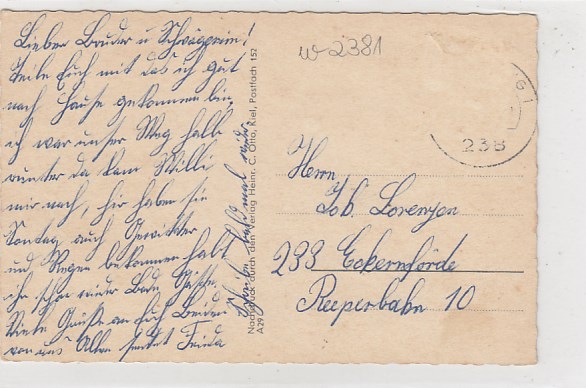 Lieber Bruder u Schwägerin!
Teile Euch mit das ich gut
nach Hause gekommen bin,
ich war unser Weg halb
runter da kam Willi
mir nach, hir haben sie
Sontag auch Gewitter
und Regen bekommen habt
ihr schon wieder Bade Gäste,
Viele Grüße an Euch Beiden
von uns Allen sendet Frieda
Schreibe bald mal wieder
Nachdruck durch den Verlag Heinr. C. Otto, Kiel, Postfach 152
A29
w 2381
61
238
Herrn
Joh. Lorenzen
233 Eckernförde
Reeperbahn 10